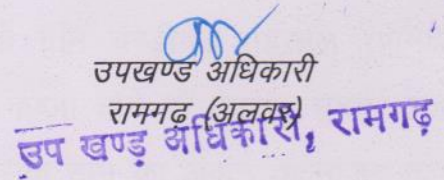 उपखण्ड अधिकारी
रामगढ़ (अलवर)
उप खण्ड़ अधिकारी, रामगढ़